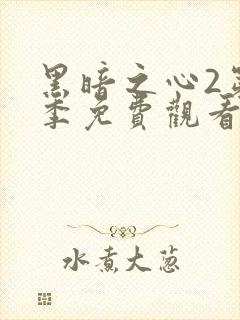 黑暗之心2第
季免費觀看
水煮大蔥